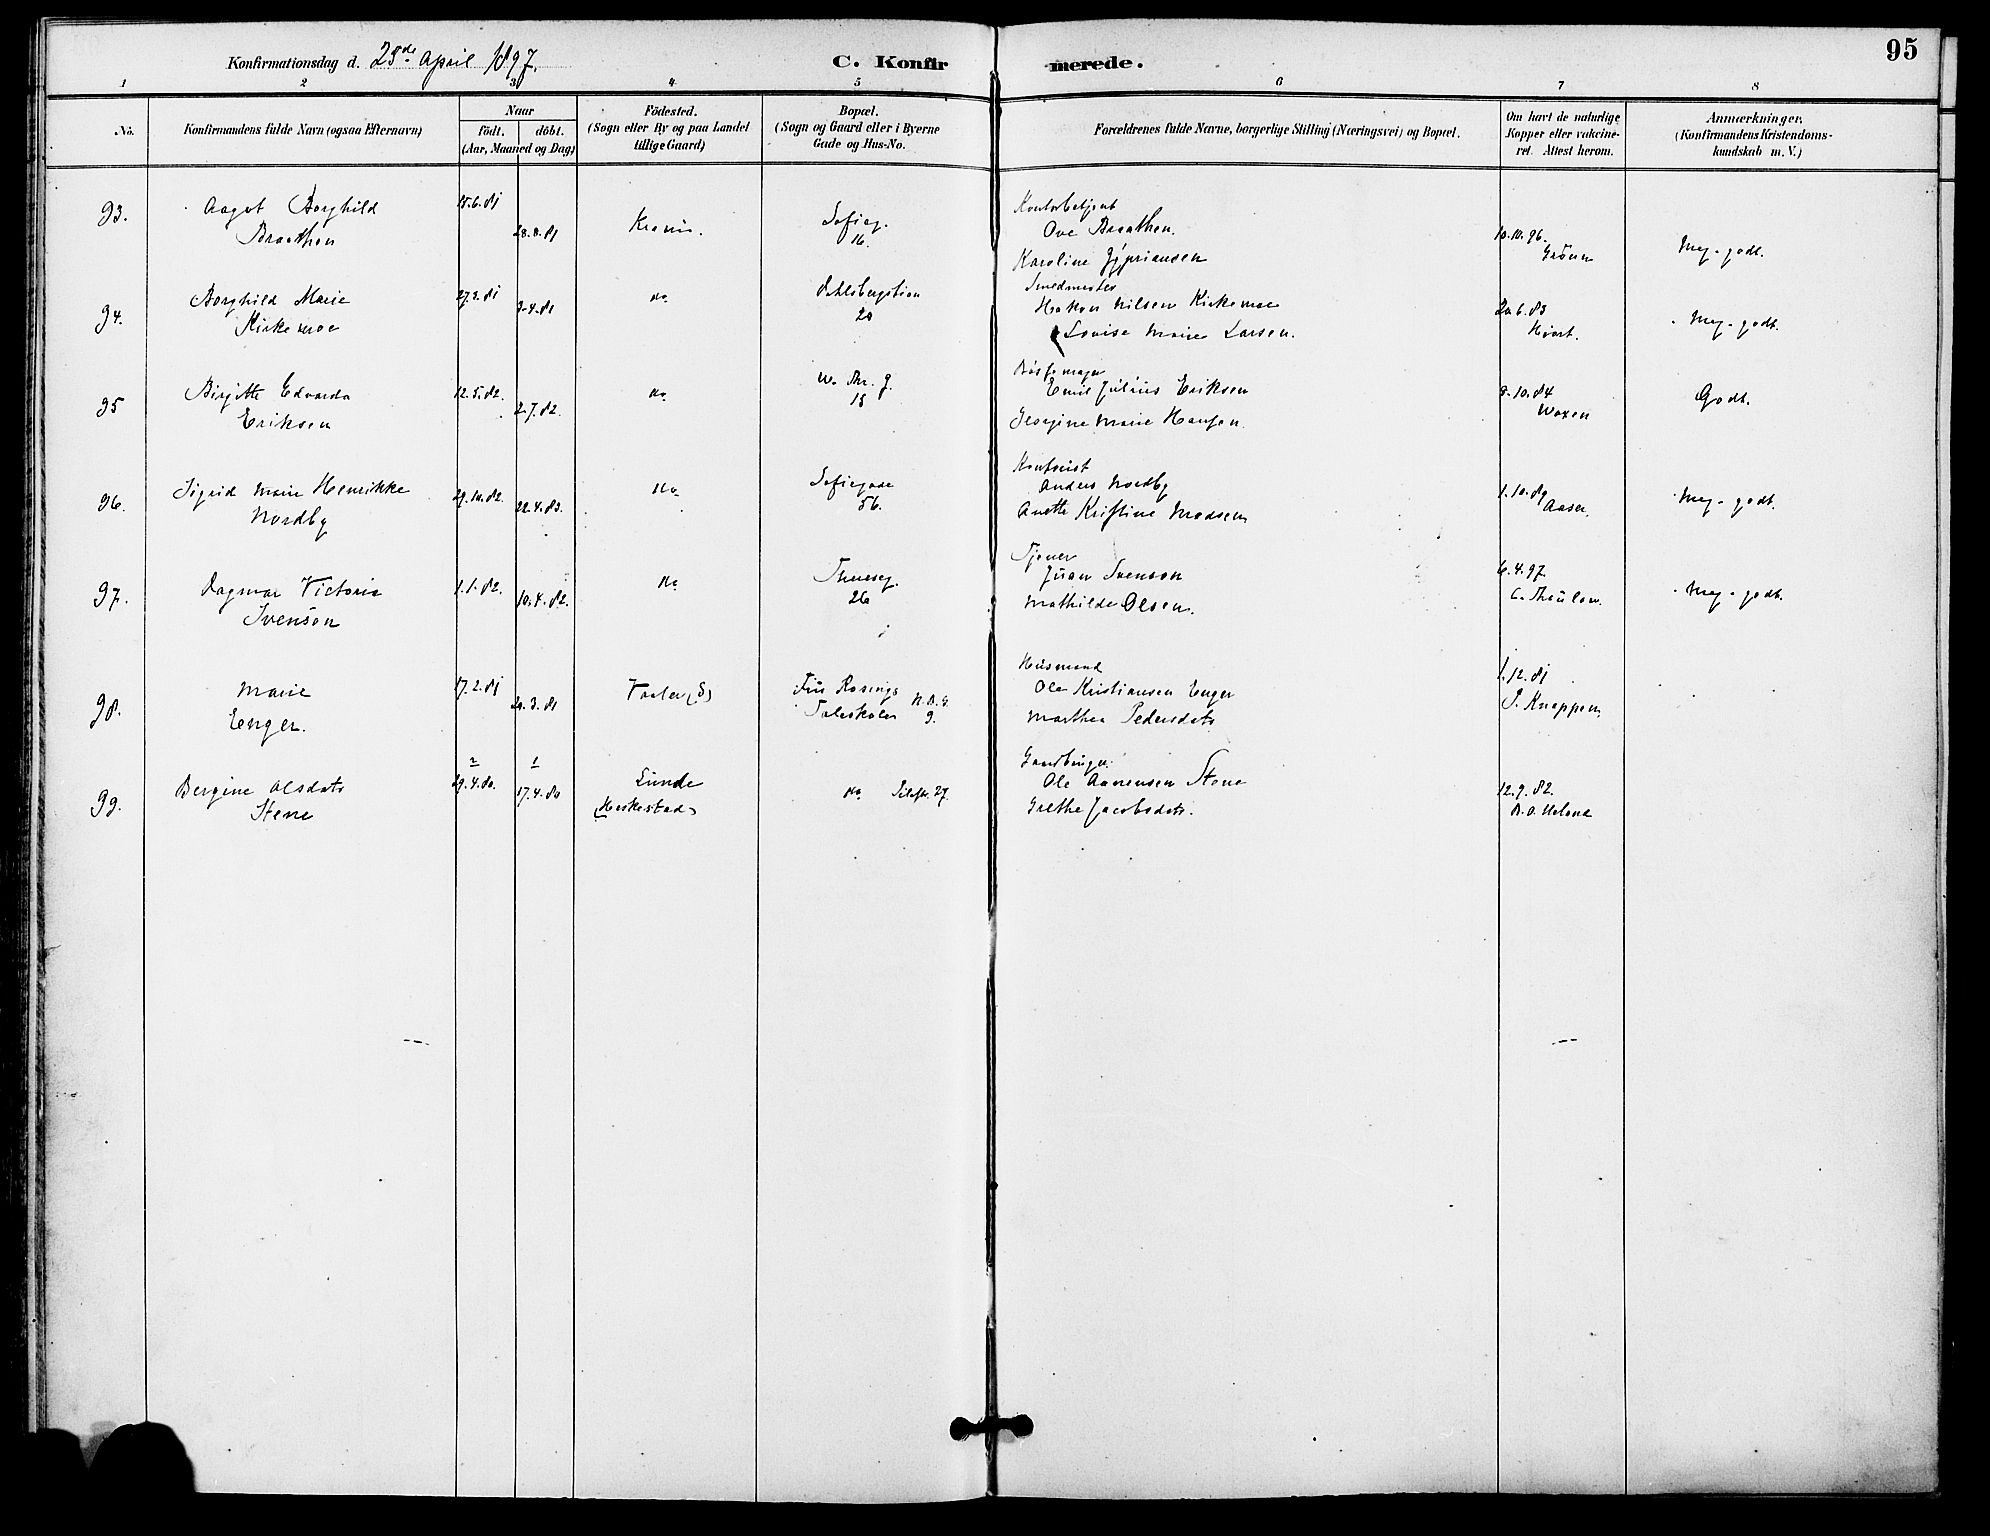 95
Konfirmationsdag d. 25de April 1897.
C. Konfirmerede.
1 2 3 4 5 6 7 8
No.
Konfirmandens fulde Navn (ogsaa Efternavn)
Naar
födt. döbt.
(Aar, Maaned og Dag)
Födested.
(Sogn eller By og paa Landet
tillige Gaard)
Bopæl.
(Sogn og Gaard eller i Byerne
Gade og Hus-No.
Forældrenes fulde Navne, borgerlige Stilling (Næringsvei) og Bopæl.
Om havt de naturlige
Kopper eller vakcine-
ret. Attest herom.
Anmærkninger.
(Konfirmandens Kristendoms-
kundskab m. V.)
93.
Aagot Borghild
Braathen
15.6.81
28.8.81
Kra
Sofieg.
16.
Kontorbetjent
Ove Braathen.
Karoline
10.10.96.
Grönn
Meg. godt.
94.
Borghild Marie
Kirkemoe
27.2.81
3.4.81
do
Dahlsbergstien
20
Smedmester
Hakon Nilsen Kirkemoe
Lovise Marie Larsen.
20.6.83
Hjort.
Meg. godt.
95
Birgitte Edvarda
Eriksen
12.5.82.
2.7.82.
do
W. Thr. g.
15
Bössemager
Emil Julius Eriksen
Georgine Marie Hansen.
9.10.84
Woxen
Godt.
96.
Sigrid Marie Henrikke
Nordby
29.10.82.
22.4.83.
do
Sofiegade
56.
Kontorist
Anders Nordby
Anette Kristine Madsen
1.10.89
Aaser.
Meg. godt.
97.
Dagmar Victoria
Svenson
1.1.82.
10.4.82.
do
Thuesg.
26
Tjener
Juan Svenson
Mathilde Olsen.
6.4.97.
C. Thaulow.
Meg. godt.
98.
Marie
Enger.
17.2.81
20.3.81
Vaaler (S)
Fru Rosings
Taleskole
9.
Husmand
Ole Kristiansen Enger
Marthea Pedersdatr
1.12.81
P. Knappen
99.
Bergine Olsdatr
Stene
2
29.4.80.
1
17.4.80
Lunde
(Heskestad)
do Pilestr. 27.
Gaardbruger.
Ole Aanensen Stene
Grethe Jacobsdatr.
12.9.82.